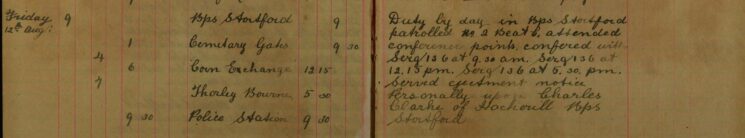 Friday 9 Bps Stortford 9 Duty by day in Bps Stortford
12th Aug: patrolled No 2 Beat, attended
1 Cemetary Gates 9 30 conference points, confered with
4 Serg 136 at 9.30 am. Serg 136 at
6 Corn Exchange 12 15 12,15 pm. Serg 136 at 5,30, pm.
7 Served ejectment notice
Thorley Bourne 5 30 Personally upon Charles
Clarke of Hockerill Bps
9 30 Police Station 9 30 Stortford